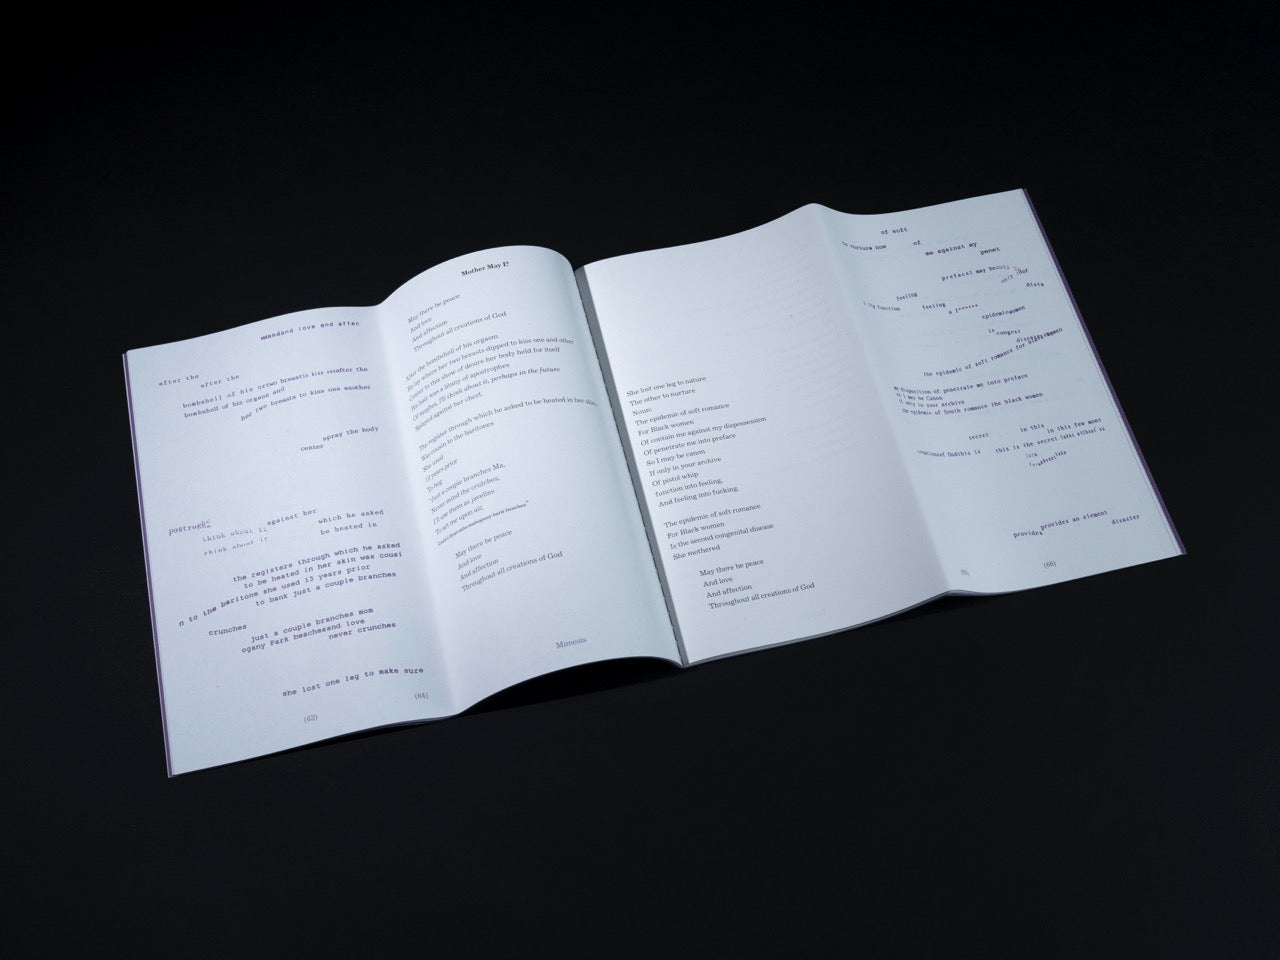 and love and affec
after the
after the
bombshell of his or two breasts kiss after the
bombshell of his organs and
her two breasts to kiss one another
spray the body
center
postrophe
against her
which he asked
think about it
be heated in
think about it
the registers through which he asked
to be heated in her skin was cousi
n to the baritone she used 13 years prior
to bank just a couple branches
crunches
just a couple branches mom
ogany Park beachesand love
never crunches
she lost one leg to make sure
(63)
(64)
Mother May I?
May there be peace
And love
And affection
Throughout all creations of God
After the bombshell of his orgasm
He lay where her two breasts dipped to kiss one and other
Center to this show of desire her body held for itself
His hair was a litany of apostrophes
Of maybes, I'll think about it, perhaps in the future
Splayed against her chest.
The register through which he asked to be heated in her skin
Was cousin to the baritones
She used
13 years prior
To beg
"Just a couple branches Ma,
Never mind the crutches,
I'll use them as javelins
To set me upon air,
May there be peace
And love
And affection
Throughout all creations of God
Mimesis
She lost one leg to nature
The other to nurture
Noun:
The epidemic of soft romance
For Black women
Of contain me against my dispossession
Of penetrate me into preface
So I may be canon
If only in your archive
Of pistol whip
function into feeling,
And feeling into fucking.
The epidemic of soft romance
For Black women
Is the second congenital disease
She mothered
May there be peace
And love
And affection
Throughout all creations of God
of soft
nurture now
of
me against my
penet
preface1 may
feeling
function
feeling
a f******
dista
epidemicwomen
is
congest
the epidemic of soft romance for
disposition of penetrate me into preface
I may be Canon
if only in your archive
the epidemic of South romance the black women
secret
in this
in this few mom
creationsof Godthis is
this is the secret takes without
provides an element
provides
disaster
(66)